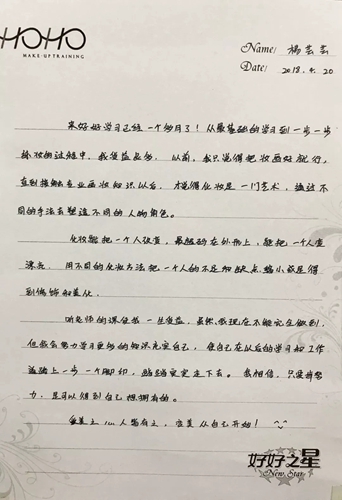 HOHO
MAKE-UP TRAINING
Name: 杨芸芸
Date: 2018.4.20
来好好学习已经一个多月了！从最基础的学习到一步一步
妆的过程中，我受益良多。以前，我只觉得把妆画好就行，
直到接触专业画妆知识以后，才觉得化妆是一门艺术，通过不
同的手法去塑造不同的人物角色。
化妆能把一个人改变，最起码在外形上，能把一个人变
漂亮。用不同的化妆方法把一个人的不足和缺点缩小或是得
到修饰和美化。
听老师的课使我一生受益，虽然我现在不能完全做到，
但我会努力学习更多的知识充实自己，使自己在以后的学习和工作
道路上一步一个脚印，踏踏实实走下去。我相信，只要我努
力，是可以得到自己想拥有的。
爱美之心人皆有之，变美从自己开始！
好好之星
New Star